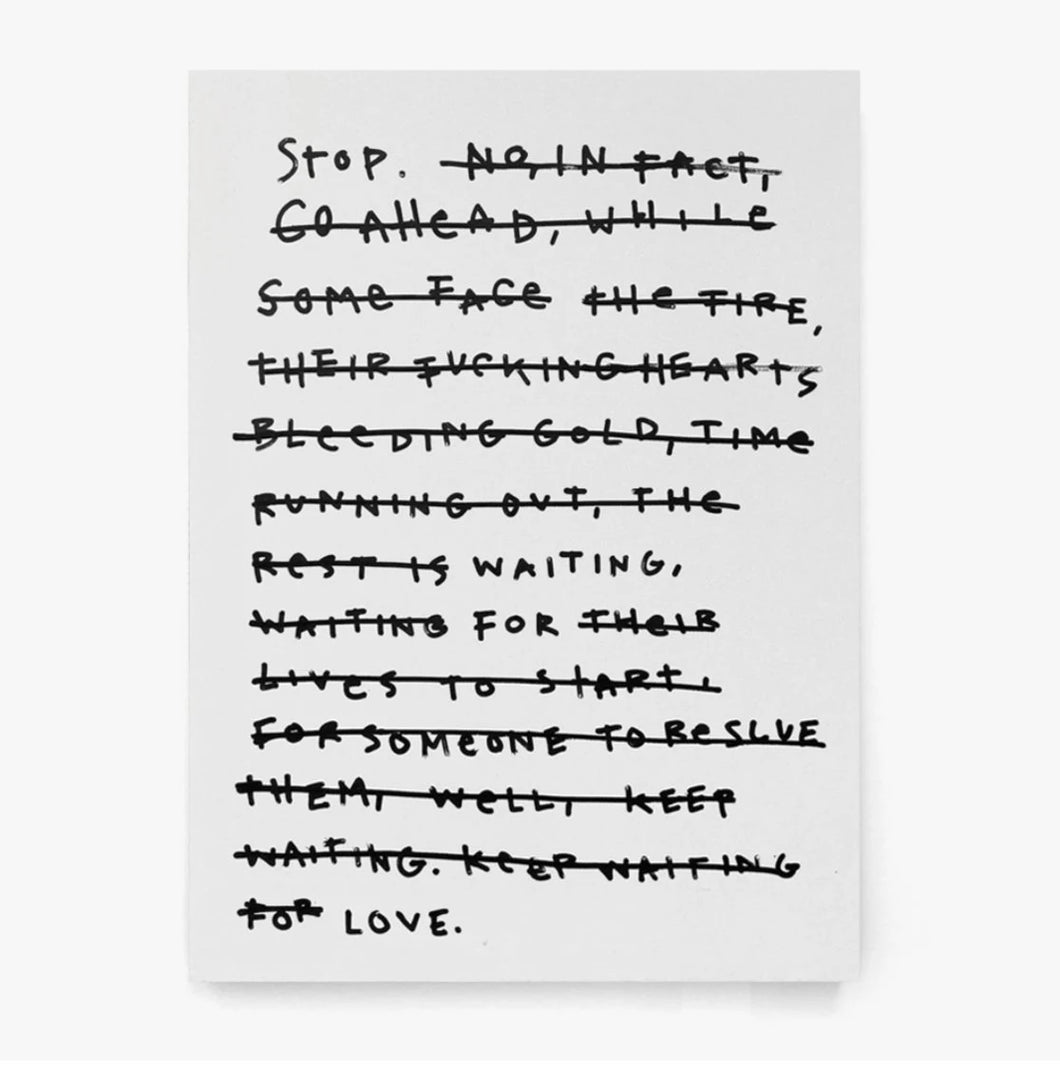 Stop. NO, IN FACT,
GO AHEAD, WHILE
SOMe FACE tHe FIRE,
THEIR FUCKING HEARTS
BLeeDING GOLD, TIMe
RUNNING OUT, THe
ReST IS WAITING.
WAITING FOR THeIR
LIVeS TO StARt,
FOR SOMeONE TO ReSCUE
THEM, WeLL, KEEP
WAITING. KeEP WAITING
FOR LOVE.